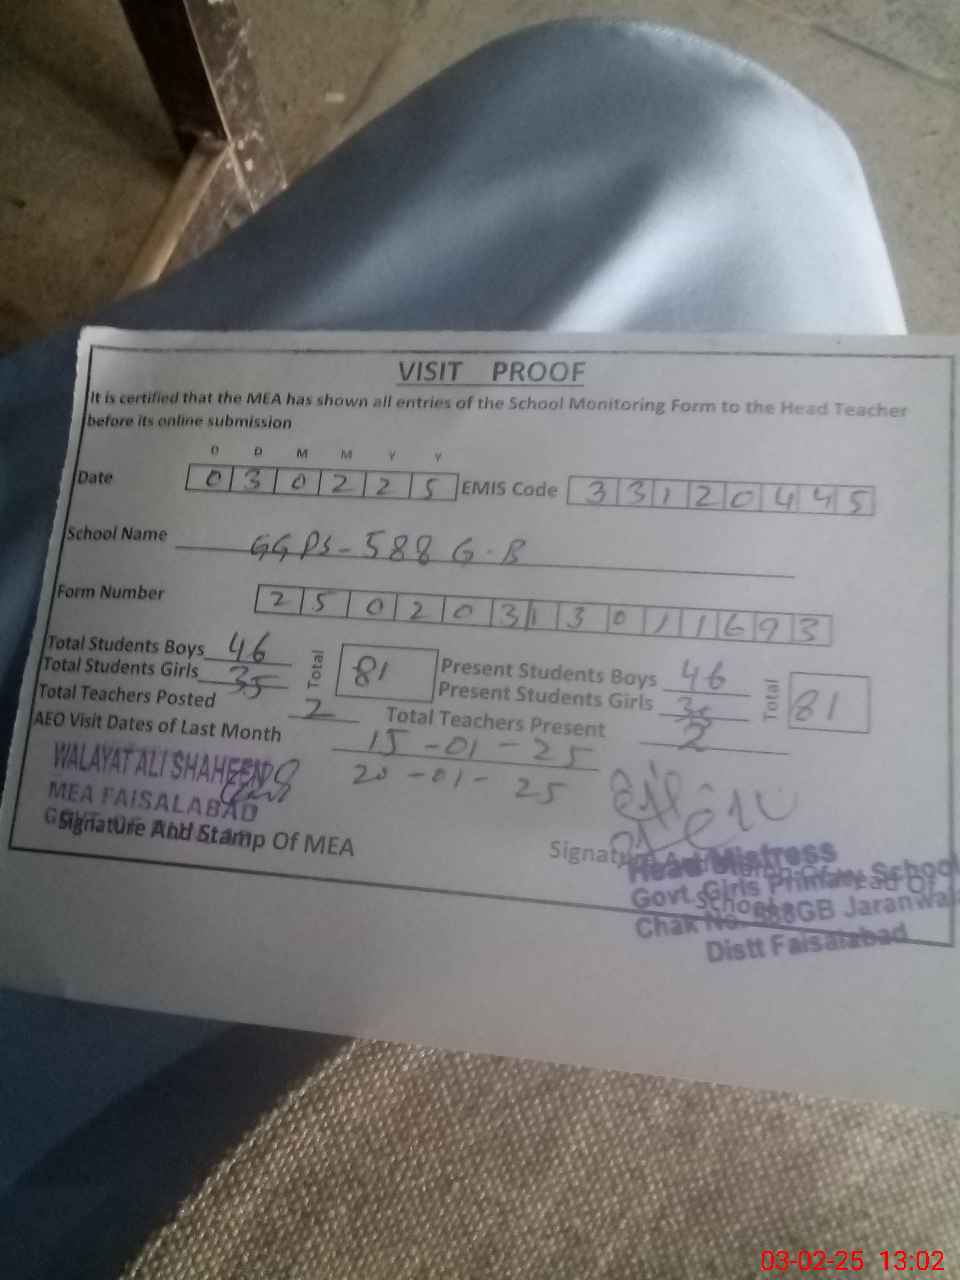 VISIT PROOF
It is certified that the MEA has shown all entries of the School Monitoring Form to the Head Teacher
before its online submission
D D M M Y Y
Date 0 3 0 2 2 5 EMIS Code 3 3 1 2 0 4 4 5
School Name GGPS-588 G.B
Form Number 2 5 0 2 0 3 1 3 0 1 1 6 9 3
Total Students Boys 46 Total 81 Present Students Boys 46 Total 81
Total Students Girls 35 Present Students Girls
Total Teachers Posted 2 Total Teachers Present 2
AEO Visit Dates of Last Month 15-01-25
20-01-25
WALAYAT ALI SHAHEEN
MEA FAISALABAD
Signature And Stamp Of MEA
Head Mistress
Govt. Girls Primary School
Chak No. 588GB Jaranwala
Distt Faisalabad
03-02-25 13:02